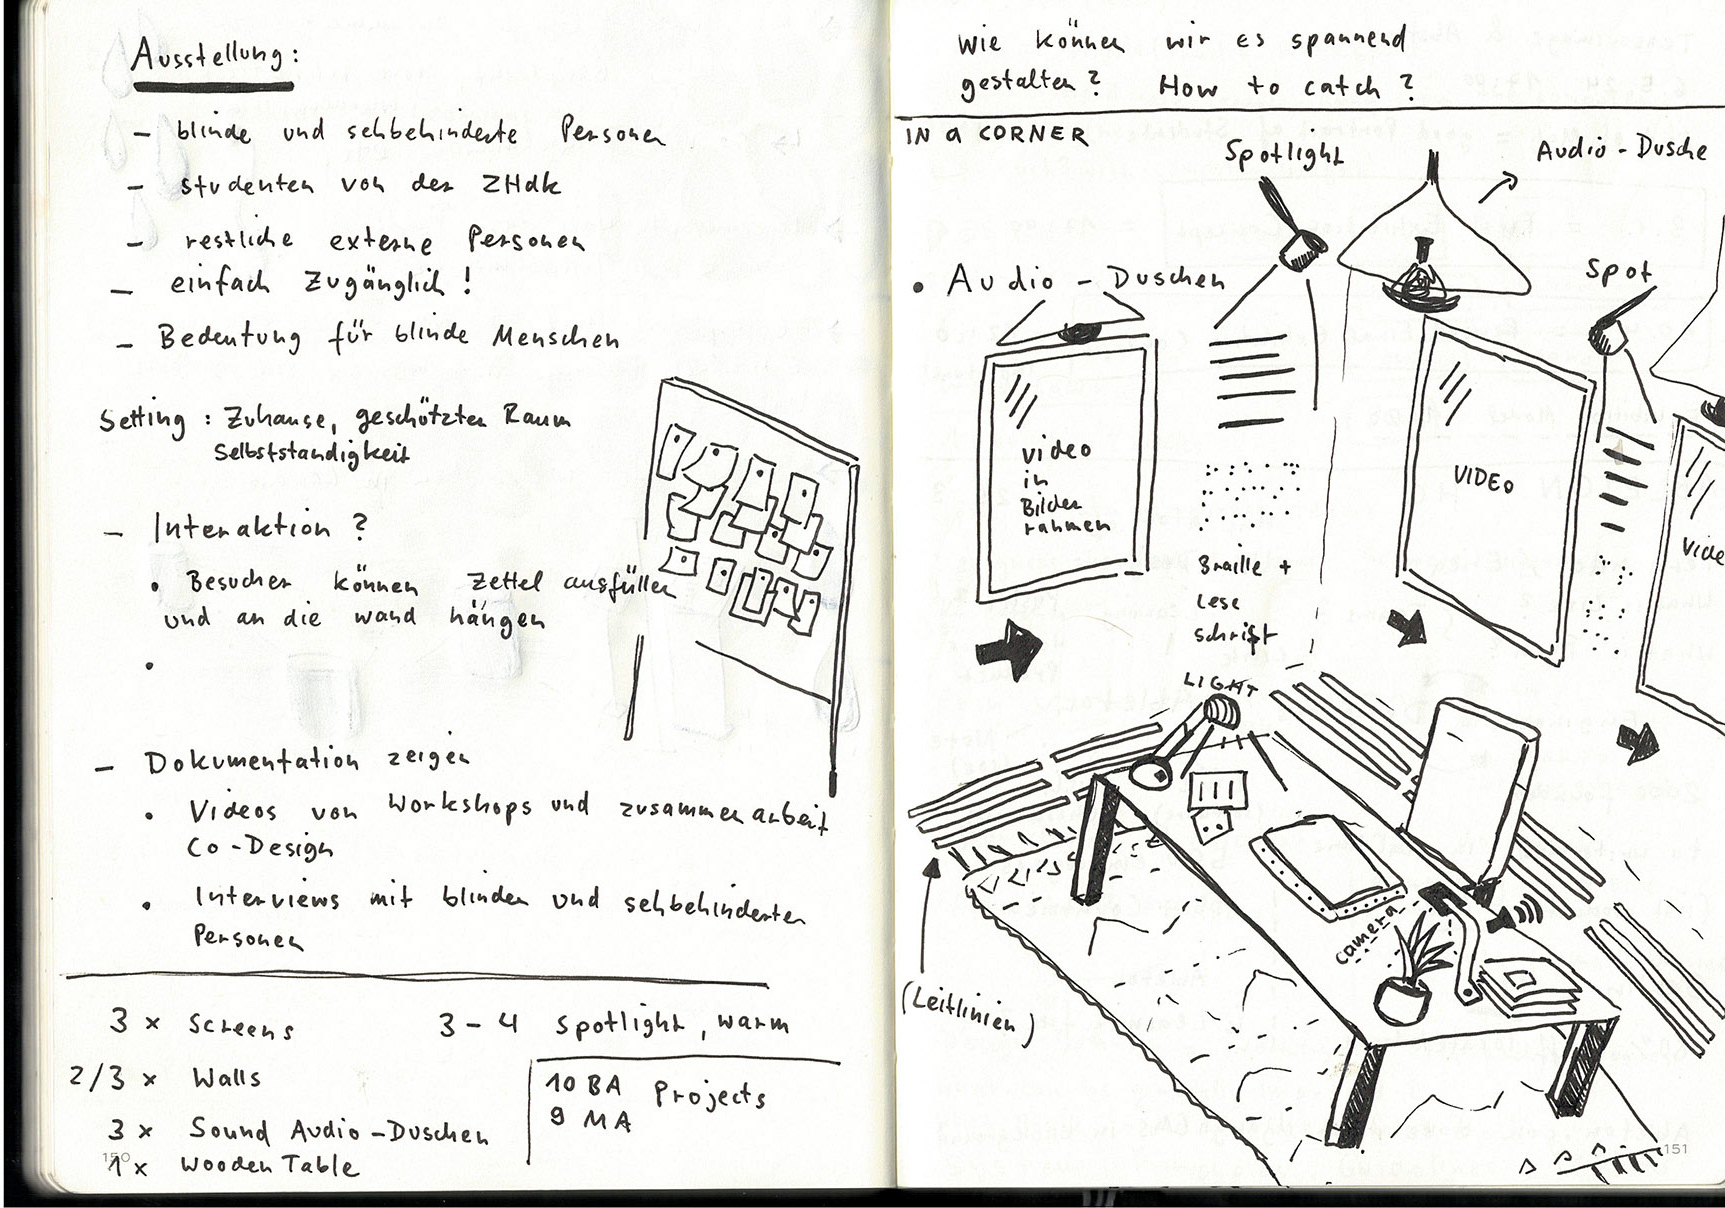 Ausstellung:
- blinde und sehbehinderte Personen
- studenten von der ZHdk
- restliche externe Personen
- einfach Zugänglich!
- Bedeutung für blinde Menschen
Setting: Zuhause, geschützter Raum
Selbstständigkeit
- Interaktion?
• Besucher können Zettel ausfüllen
und an die wand hängen
•
- Dokumentation zeigen
• Videos von Workshops und zusammenarbeit
Co-Design
• Interviews mit blinden und sehbehinderten
Personen
3 x Screens
3-4 spotlight, warm
2/3 x Walls
10 BA Projects
9 MA
3 x Sound Audio-Duschen
1 x Wooden Table
150
Wie können wir es spannend
gestalten? How to catch?
IN a CORNER
Spotlight
Audio-Dusche
• Audio-Duschen
Spot
video
in
Bilder
rahmen
VIDEO
Vide
Braille +
Lese
schrift
LIGHT
camera
(Leitlinien)
151